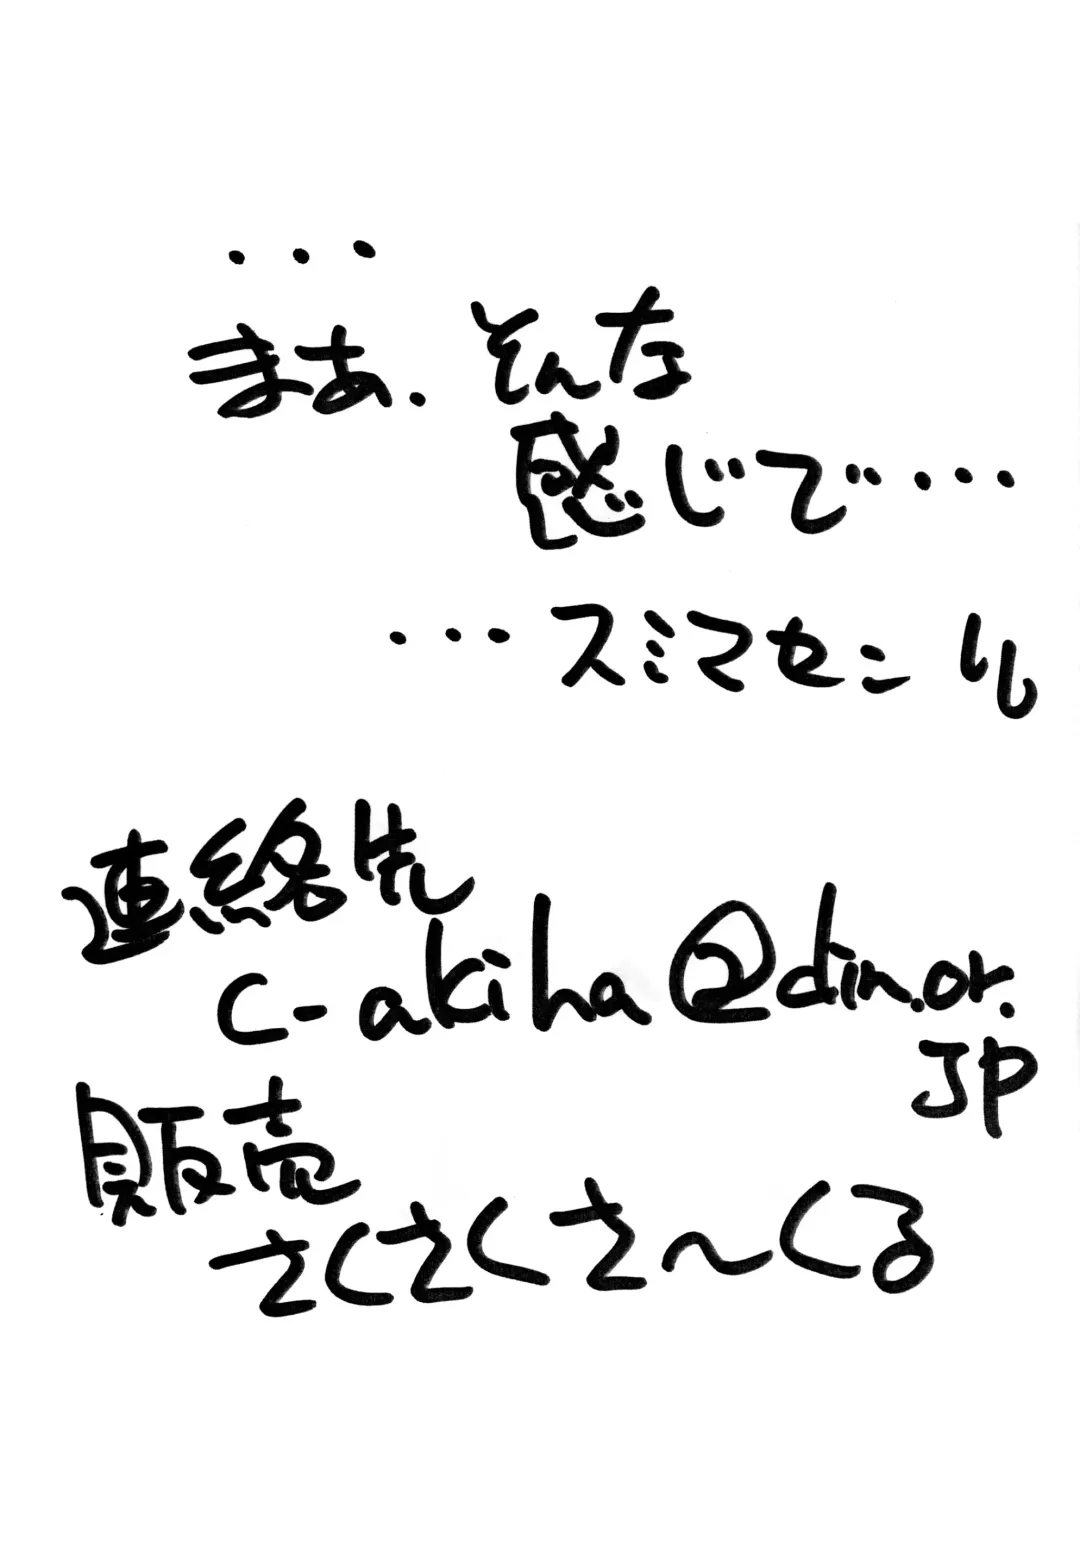 ・・・
まあ．そんな
感じで・・・・
・・・スミマセン
連絡先
c-akiha@din.or.
JP
販売
さくさくさ～くる